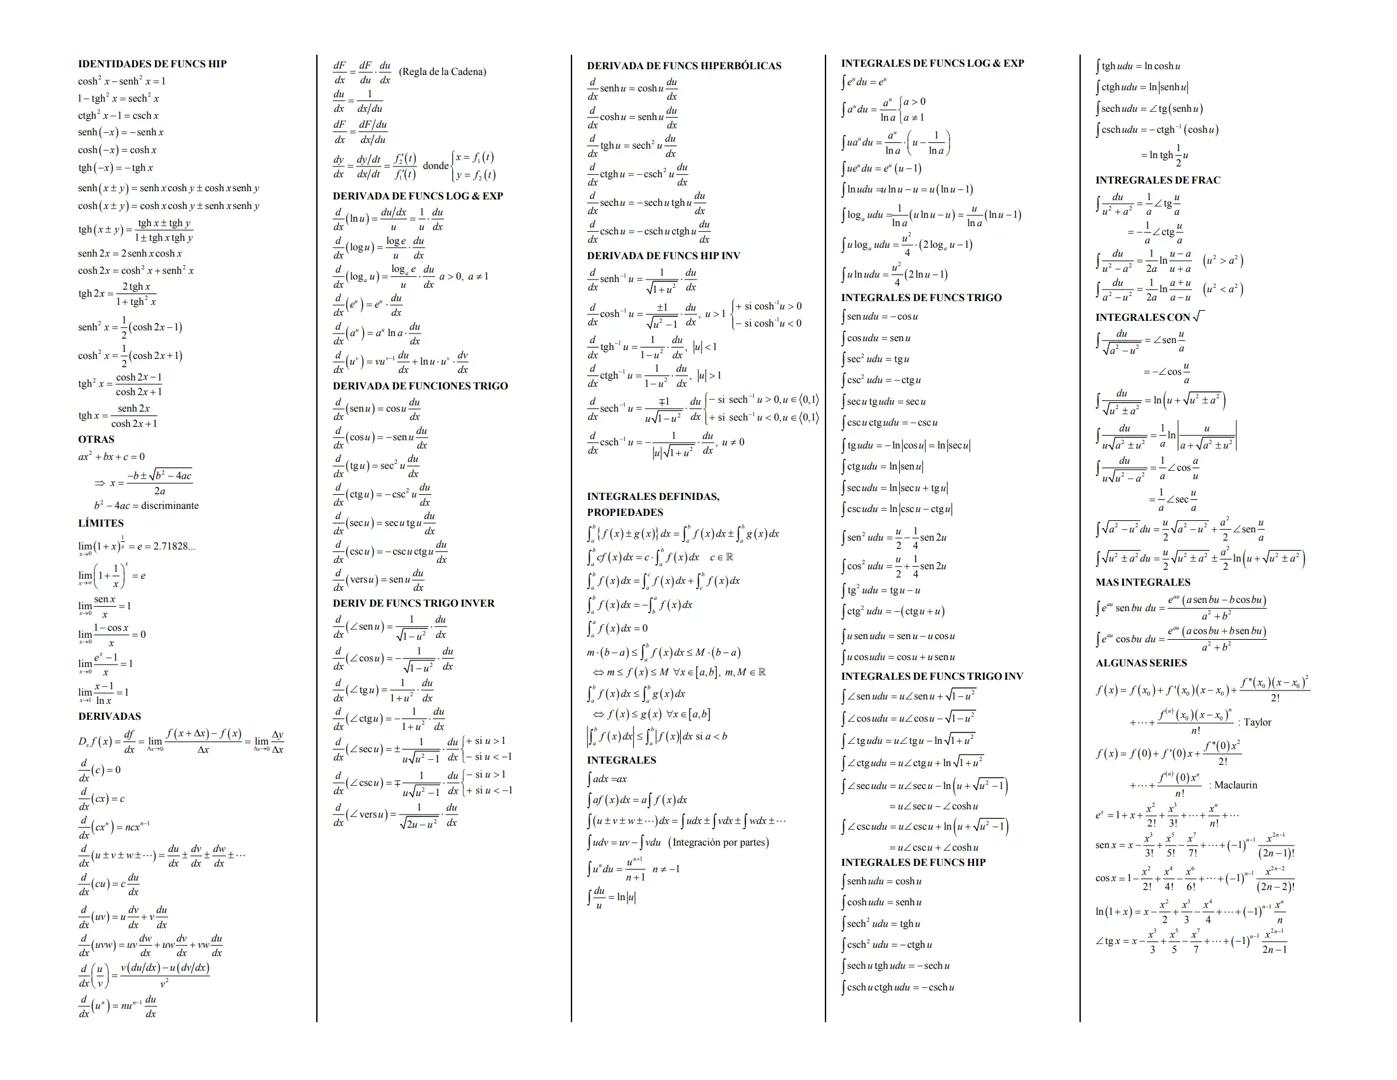 IDENTIDADES DE FUNCS HIP
cosh² x − senh² x = 1
1 − tgh² x = sech² x
ctgh² x − 1 = csch x
senh(−x) = −senh x
cosh(−x) = cosh x
tgh(−x) = −tgh x
senh(x ± y) = senh x cosh y ± cosh x senh y
cosh(x ± y) = cosh x cosh y ± senh x senh y
tgh(x ± y) = (tgh x ± tgh y)/(1 ± tgh x tgh y)
senh 2x = 2 senh x cosh x
cosh 2x = cosh² x + senh² x
tgh 2x = 2 tgh x/(1 + tgh² x)
senh² x = 1/2 (cosh 2x − 1)
cosh² x = 1/2 (cosh 2x + 1)
tgh² x = (cosh 2x − 1)/(cosh 2x + 1)
tgh x = senh 2x/(cosh 2x + 1)
OTRAS
ax² + bx + c = 0
⇒ x = (−b ± √(b² − 4ac))/2a
b² − 4ac = discriminante
LÍMITES
lim x→0 (1 + x)^(1/x) = e = 2.71828...
lim x→∞ (1 + 1/x)^x = e
lim x→0 sen x/x = 1
lim x→0 (1 − cos x)/x = 0
lim x→0 (e^x − 1)/x = 1
lim x→1 (x − 1)/ln x = 1
DERIVADAS
D_x f(x) = df/dx = lim Δx→0 (f(x + Δx) − f(x))/Δx = lim Δx→0 Δy/Δx
d/dx (c) = 0
d/dx (cx) = c
d/dx (cx^n) = ncx^(n−1)
d/dx (u ± v ± w ± ⋯) = du/dx ± dv/dx ± dw/dx ± ⋯
d/dx (cu) = c du/dx
d/dx (uv) = u dv/dx + v du/dx
d/dx (uvw) = uv dw/dx + uw dv/dx + vw du/dx
d/dx (u/v) = (v(du/dx) − u(dv/dx))/v²
d/dx (u^n) = nu^(n−1) du/dx
dF/dx = dF/du · du/dx (Regla de la Cadena)
du/dx = 1/(dx/du)
dF/dx = (dF/du)/(dx/du)
dy/dx = (dy/dt)/(dx/dt) = f₂′(t)/f₁′(t) donde { x = f₁(t)
y = f₂(t)
DERIVADA DE FUNCS LOG & EXP
d/dx (ln u) = (du/dx)/u = 1/u · du/dx
d/dx (log u) = log e/u · du/dx
d/dx (log_a u) = log_a e/u · du/dx a > 0, a ≠ 1
d/dx (e^u) = e^u · du/dx
d/dx (a^u) = a^u ln a · du/dx
d/dx (u^v) = vu^(v−1) du/dx + ln u · u^v · dv/dx
DERIVADA DE FUNCIONES TRIGO
d/dx (sen u) = cos u du/dx
d/dx (cos u) = −sen u du/dx
d/dx (tg u) = sec² u du/dx
d/dx (ctg u) = −csc² u du/dx
d/dx (sec u) = sec u tg u du/dx
d/dx (csc u) = −csc u ctg u du/dx
d/dx (vers u) = sen u du/dx
DERIV DE FUNCS TRIGO INVER
d/dx (∠sen u) = 1/√(1 − u²) · du/dx
d/dx (∠cos u) = −1/√(1 − u²) · du/dx
d/dx (∠tg u) = 1/(1 + u²) · du/dx
d/dx (∠ctg u) = −1/(1 + u²) · du/dx
d/dx (∠sec u) = ± 1/(u√(u² − 1)) · du/dx { + si u > 1
− si u < −1
d/dx (∠csc u) = ∓ 1/(u√(u² − 1)) · du/dx { − si u > 1
+ si u < −1
d/dx (∠vers u) = 1/√(2u − u²) · du/dx
DERIVADA DE FUNCS HIPERBÓLICAS
d/dx senh u = cosh u du/dx
d/dx cosh u = senh u du/dx
d/dx tgh u = sech² u du/dx
d/dx ctgh u = −csch² u du/dx
d/dx sech u = −sech u tgh u du/dx
d/dx csch u = −csch u ctgh u du/dx
DERIVADA DE FUNCS HIP INV
d/dx senh⁻¹ u = 1/√(1 + u²) · du/dx
d/dx cosh⁻¹ u = ±1/√(u² − 1) · du/dx, u > 1 { + si cosh⁻¹ u > 0
− si cosh⁻¹ u < 0
d/dx tgh⁻¹ u = 1/(1 − u²) · du/dx, |u| < 1
d/dx ctgh⁻¹ u = 1/(1 − u²) · du/dx, |u| > 1
d/dx sech⁻¹ u = ∓1/(u√(1 − u²)) · du/dx { − si sech⁻¹ u > 0, u ∈ ⟨0,1⟩
+ si sech⁻¹ u < 0, u ∈ ⟨0,1⟩
d/dx csch⁻¹ u = −1/(|u|√(1 + u²)) · du/dx, u ≠ 0
INTEGRALES DEFINIDAS,
PROPIEDADES
∫_a^b {f(x) ± g(x)} dx = ∫_a^b f(x) dx ± ∫_a^b g(x) dx
∫_a^b cf(x) dx = c · ∫_a^b f(x) dx c ∈ ℝ
∫_a^b f(x) dx = ∫_a^c f(x) dx + ∫_c^b f(x) dx
∫_a^b f(x) dx = −∫_b^a f(x) dx
∫_a^a f(x) dx = 0
m · (b − a) ≤ ∫_a^b f(x) dx ≤ M · (b − a)
⇔ m ≤ f(x) ≤ M ∀x ∈ [a,b], m, M ∈ ℝ
∫_a^b f(x) dx ≤ ∫_a^b g(x) dx
⇔ f(x) ≤ g(x) ∀x ∈ [a,b]
|∫_a^b f(x) dx| ≤ ∫_a^b |f(x)| dx si a < b
INTEGRALES
∫ adx = ax
∫ af(x) dx = a ∫ f(x) dx
∫ (u ± v ± w ± ⋯) dx = ∫ udx ± ∫ vdx ± ∫ wdx ± ⋯
∫ udv = uv − ∫ vdu (Integración por partes)
∫ u^n du = u^(n+1)/(n + 1) n ≠ −1
∫ du/u = ln|u|
INTEGRALES DE FUNCS LOG & EXP
∫ e^u du = e^u
∫ a^u du = a^u/ln a { a > 0
a ≠ 1
∫ ua^u du = a^u/ln a · (u − 1/ln a)
∫ ue^u du = e^u (u − 1)
∫ ln udu = u ln u − u = u(ln u − 1)
∫ log_a udu = 1/ln a (u ln u − u) = u/ln a (ln u − 1)
∫ u log_a udu = u²/4 · (2 log_a u − 1)
∫ u ln udu = u²/4 (2 ln u − 1)
INTEGRALES DE FUNCS TRIGO
∫ sen udu = −cos u
∫ cos udu = sen u
∫ sec² udu = tg u
∫ csc² udu = −ctg u
∫ sec u tg udu = sec u
∫ csc u ctg udu = −csc u
∫ tg udu = −ln|cos u| = ln|sec u|
∫ ctg udu = ln|sen u|
∫ sec udu = ln|sec u + tg u|
∫ csc udu = ln|csc u − ctg u|
∫ sen² udu = u/2 − 1/4 sen 2u
∫ cos² udu = u/2 + 1/4 sen 2u
∫ tg² udu = tg u − u
∫ ctg² udu = −(ctg u + u)
∫ u sen udu = sen u − u cos u
∫ u cos udu = cos u + u sen u
INTEGRALES DE FUNCS TRIGO INV
∫ ∠sen udu = u∠sen u + √(1 − u²)
∫ ∠cos udu = u∠cos u − √(1 − u²)
∫ ∠tg udu = u∠tg u − ln √(1 + u²)
∫ ∠ctg udu = u∠ctg u + ln √(1 + u²)
∫ ∠sec udu = u∠sec u − ln(u + √(u² − 1))
= u∠sec u − ∠cosh u
∫ ∠csc udu = u∠csc u + ln(u + √(u² − 1))
= u∠csc u + ∠cosh u
INTEGRALES DE FUNCS HIP
∫ senh udu = cosh u
∫ cosh udu = senh u
∫ sech² udu = tgh u
∫ csch² udu = −ctgh u
∫ sech u tgh udu = −sech u
∫ csch u ctgh udu = −csch u
∫ tgh udu = ln cosh u
∫ ctgh udu = ln|senh u|
∫ sech udu = ∠tg(senh u)
∫ csch udu = −ctgh⁻¹(cosh u)
= ln tgh 1/2 u
INTREGRALES DE FRAC
∫ du/(u² + a²) = 1/a ∠tg u/a
= −1/a ∠ctg u/a
∫ du/(u² − a²) = 1/2a ln (u − a)/(u + a) (u² > a²)
∫ du/(a² − u²) = 1/2a ln (a + u)/(a − u) (u² < a²)
INTEGRALES CON √
∫ du/√(a² − u²) = ∠sen u/a
= −∠cos u/a
∫ du/√(u² ± a²) = ln(u + √(u² ± a²))
∫ du/(u√(a² ± u²)) = 1/a ln|u/(a + √(a² ± u²))|
∫ du/(u√(u² − a²)) = 1/a ∠cos a/u
= 1/a ∠sec u/a
∫ √(a² − u²) du = u/2 √(a² − u²) + a²/2 ∠sen u/a
∫ √(u² ± a²) du = u/2 √(u² ± a²) ± a²/2 ln(u + √(u² ± a²))
MAS INTEGRALES
∫ e^(au) sen bu du = e^(au) (a sen bu − b cos bu)/(a² + b²)
∫ e^(au) cos bu du = e^(au) (a cos bu + b sen bu)/(a² + b²)
ALGUNAS SERIES
f(x) = f(x₀) + f'(x₀)(x − x₀) + f''(x₀)(x − x₀)²/2!
+⋯+ f⁽ⁿ⁾(x₀)(x − x₀)ⁿ/n! : Taylor
f(x) = f(0) + f'(0)x + f''(0)x²/2!
+⋯+ f⁽ⁿ⁾(0)xⁿ/n! : Maclaurin
e^x = 1 + x + x²/2! + x³/3! +⋯+ xⁿ/n! +⋯
sen x = x − x³/3! + x⁵/5! − x⁷/7! +⋯+ (−1)^(n−1) x^(2n−1)/(2n − 1)!
cos x = 1 − x²/2! + x⁴/4! − x⁶/6! +⋯+ (−1)^(n−1) x^(2n−2)/(2n − 2)!
ln(1 + x) = x − x²/2 + x³/3 − x⁴/4 +⋯+ (−1)^(n−1) xⁿ/n
∠tg x = x − x³/3 + x⁵/5 − x⁷/7 +⋯+ (−1)^(n−1) x^(2n−1)/(2n − 1)